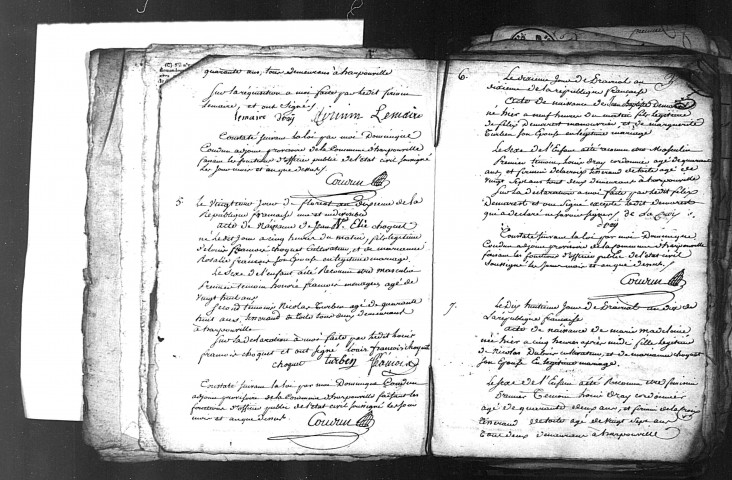 quarante ans, tous demeurans à harponville
Sur la réquisition à moi faite par ledit firmin
Lemaire, et ont signé
lemaire Droÿ firmin Lemaire
Constaté suivant la loi par moi Dominique
Coudun adjoint provisoire de la Commune d'harponville
faisant les fonctions d'officier public de l'état civil soussigné
les jour mois et an que dessus.
Coudun
5. le vingt jour de floréal an dixieme de la
République française une et indivisible
acto de Naissance de Jean Bte Elie choquet
né le dit jour à cinq heures du matin, fils légitime
de louis francois choquet cultivateur, et de marianne
Rosalie francois son Epouse en légitime mariage.
Le sexe de l'enfant a été Reconnu etre masculin
Premier temoin honoré francois menager agé de
vingt huit ans
second temoin Nicolas turben agé de quarante
huit ans, tisserand en toile tous deux demeurant
à harponville
Sur la déclaration à moi faite par ledit louis
francois choquet et ont signé louis francois choquet
choquet turben francois
Constaté suivant la loi par moi Dominique Coudun
adjoint provisoire de la Commune d'harponville faisant les
fonctions d'officier public de l'état civil soussigné les jour
mois et an que dessus.
Coudun
6. Le dixieme Jour de Prairial an
dixieme de la république française
acto de naissance de Jean Baptiste Demarest
né hier à neuf heures du matin fils légitime
de felix Demarest manouvrier, et de marguerite
turben son Epouse en légitime mariage
Le sexe de l'Enfant a été reconnu etre Masculin
Premier temoin, louis dray cordonnier agé de quarante
ans, et firmin delacroix tisserand de toile agé de
vingt sept ans tous deux demeurans à harponville
Sur la déclaration à moi faite par ledit felix
Demarest et ont signé excepté ledit demarest
qui a déclaré ne savoir signer de La Croix
Droÿ
Constaté suivant la loi par moi Dominique
Coudun adjoint provisoire de la commune d'harponville
faisant les fonctions d'officier public de l'état civil
soussigné les jour mois et an que dessus
Coudun
7. Le Dix huitieme Jour de Prairial an dix de
La république française
acto de naissance de marie madeleine
née hier à cinq heures après midi fille légitime
de Nicolas Dubois cultivateur, et de marianne choquet
son Epouse En légitime mariage.
Le sexe de l'Enfant a été Reconnu etre feminin
Premier Temoin louis dray cordonnier
agé de quarante deux ans, et firmin de la croix
tisserand de toile agé de vingt sept ans
tous deux demeurans à harponville